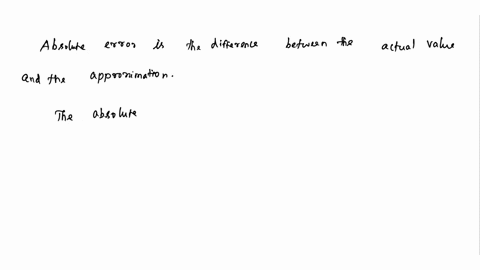 Absolute error is the difference between the actual value
and the approximation.
The absolute